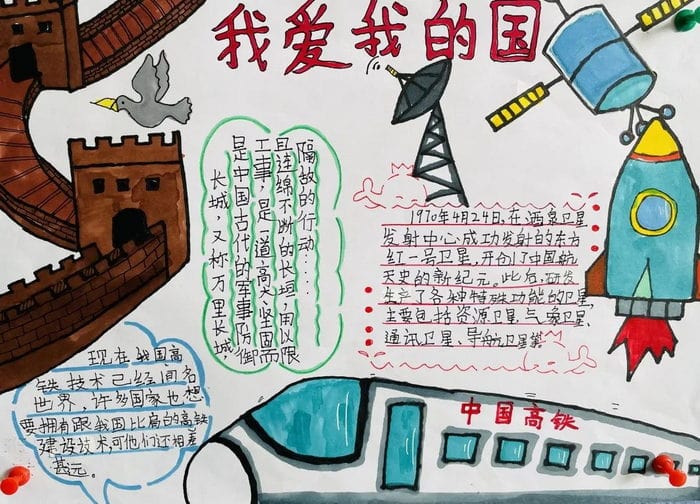 我爱我的国
长城,又称万里长城
是中国古代的军事防御
工事,是一道高大坚固而
且连绵不断的长垣,用以限
隔敌的行动……
1970年4月24日,在酒泉卫星
发射中心成功发射的东方
红一号卫星,开创了中国航
天史的新纪元。此后,研发
生产了各种特殊功能的卫星
主要包括资源卫星、气象卫星、
通讯卫星、导航卫星等
现在我国高
铁技术已经闻名
世界,许多国家也想
要拥有跟我国比肩的高铁
建设技术,可他们还相差
甚远。
中国高铁